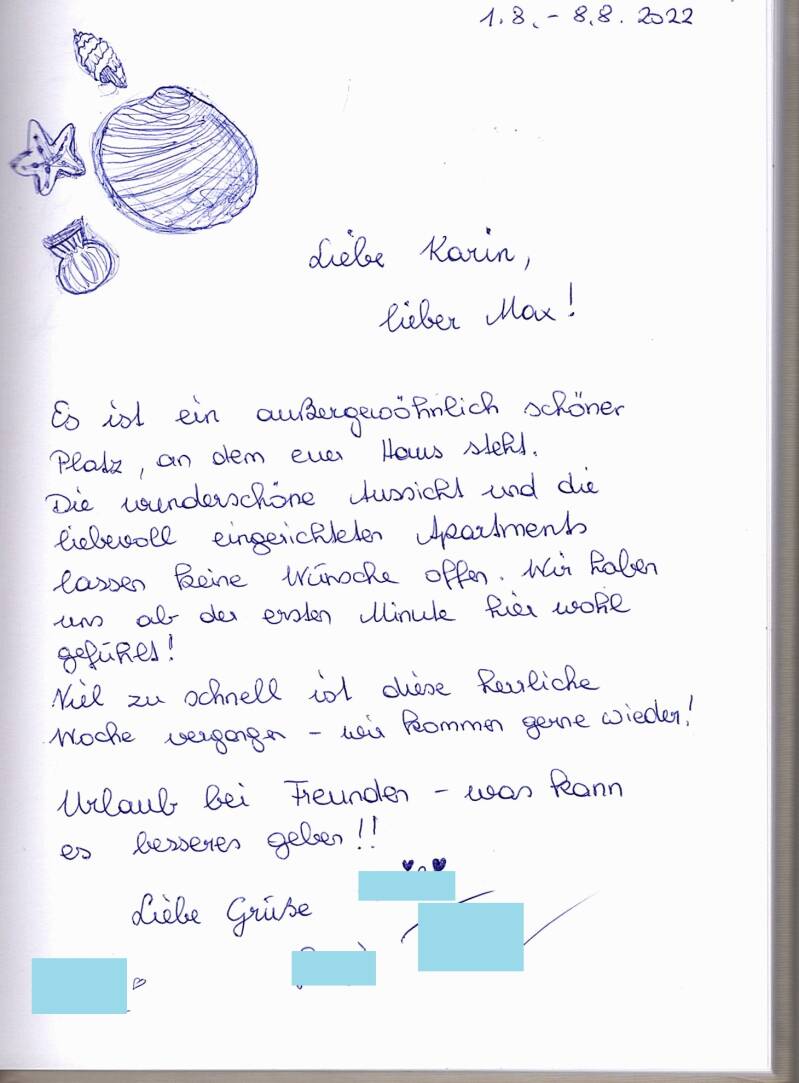 1.8. - 8.8. 2022
Liebe Karin,
lieber Max!
Es ist ein außergewöhnlich schöner
Platz, an dem euer Haus steht.
Die wunderschöne Aussicht und die
liebevoll eingerichteten Apartments
lassen keine Wünsche offen. Wir haben
uns ab der ersten Minute hier wohl
gefühlt!
Viel zu schnell ist diese herrliche
Woche vergangen - wir kommen gerne wieder!
Urlaub bei Freunden - was kann
es besseres geben!!
Liebe Grüße